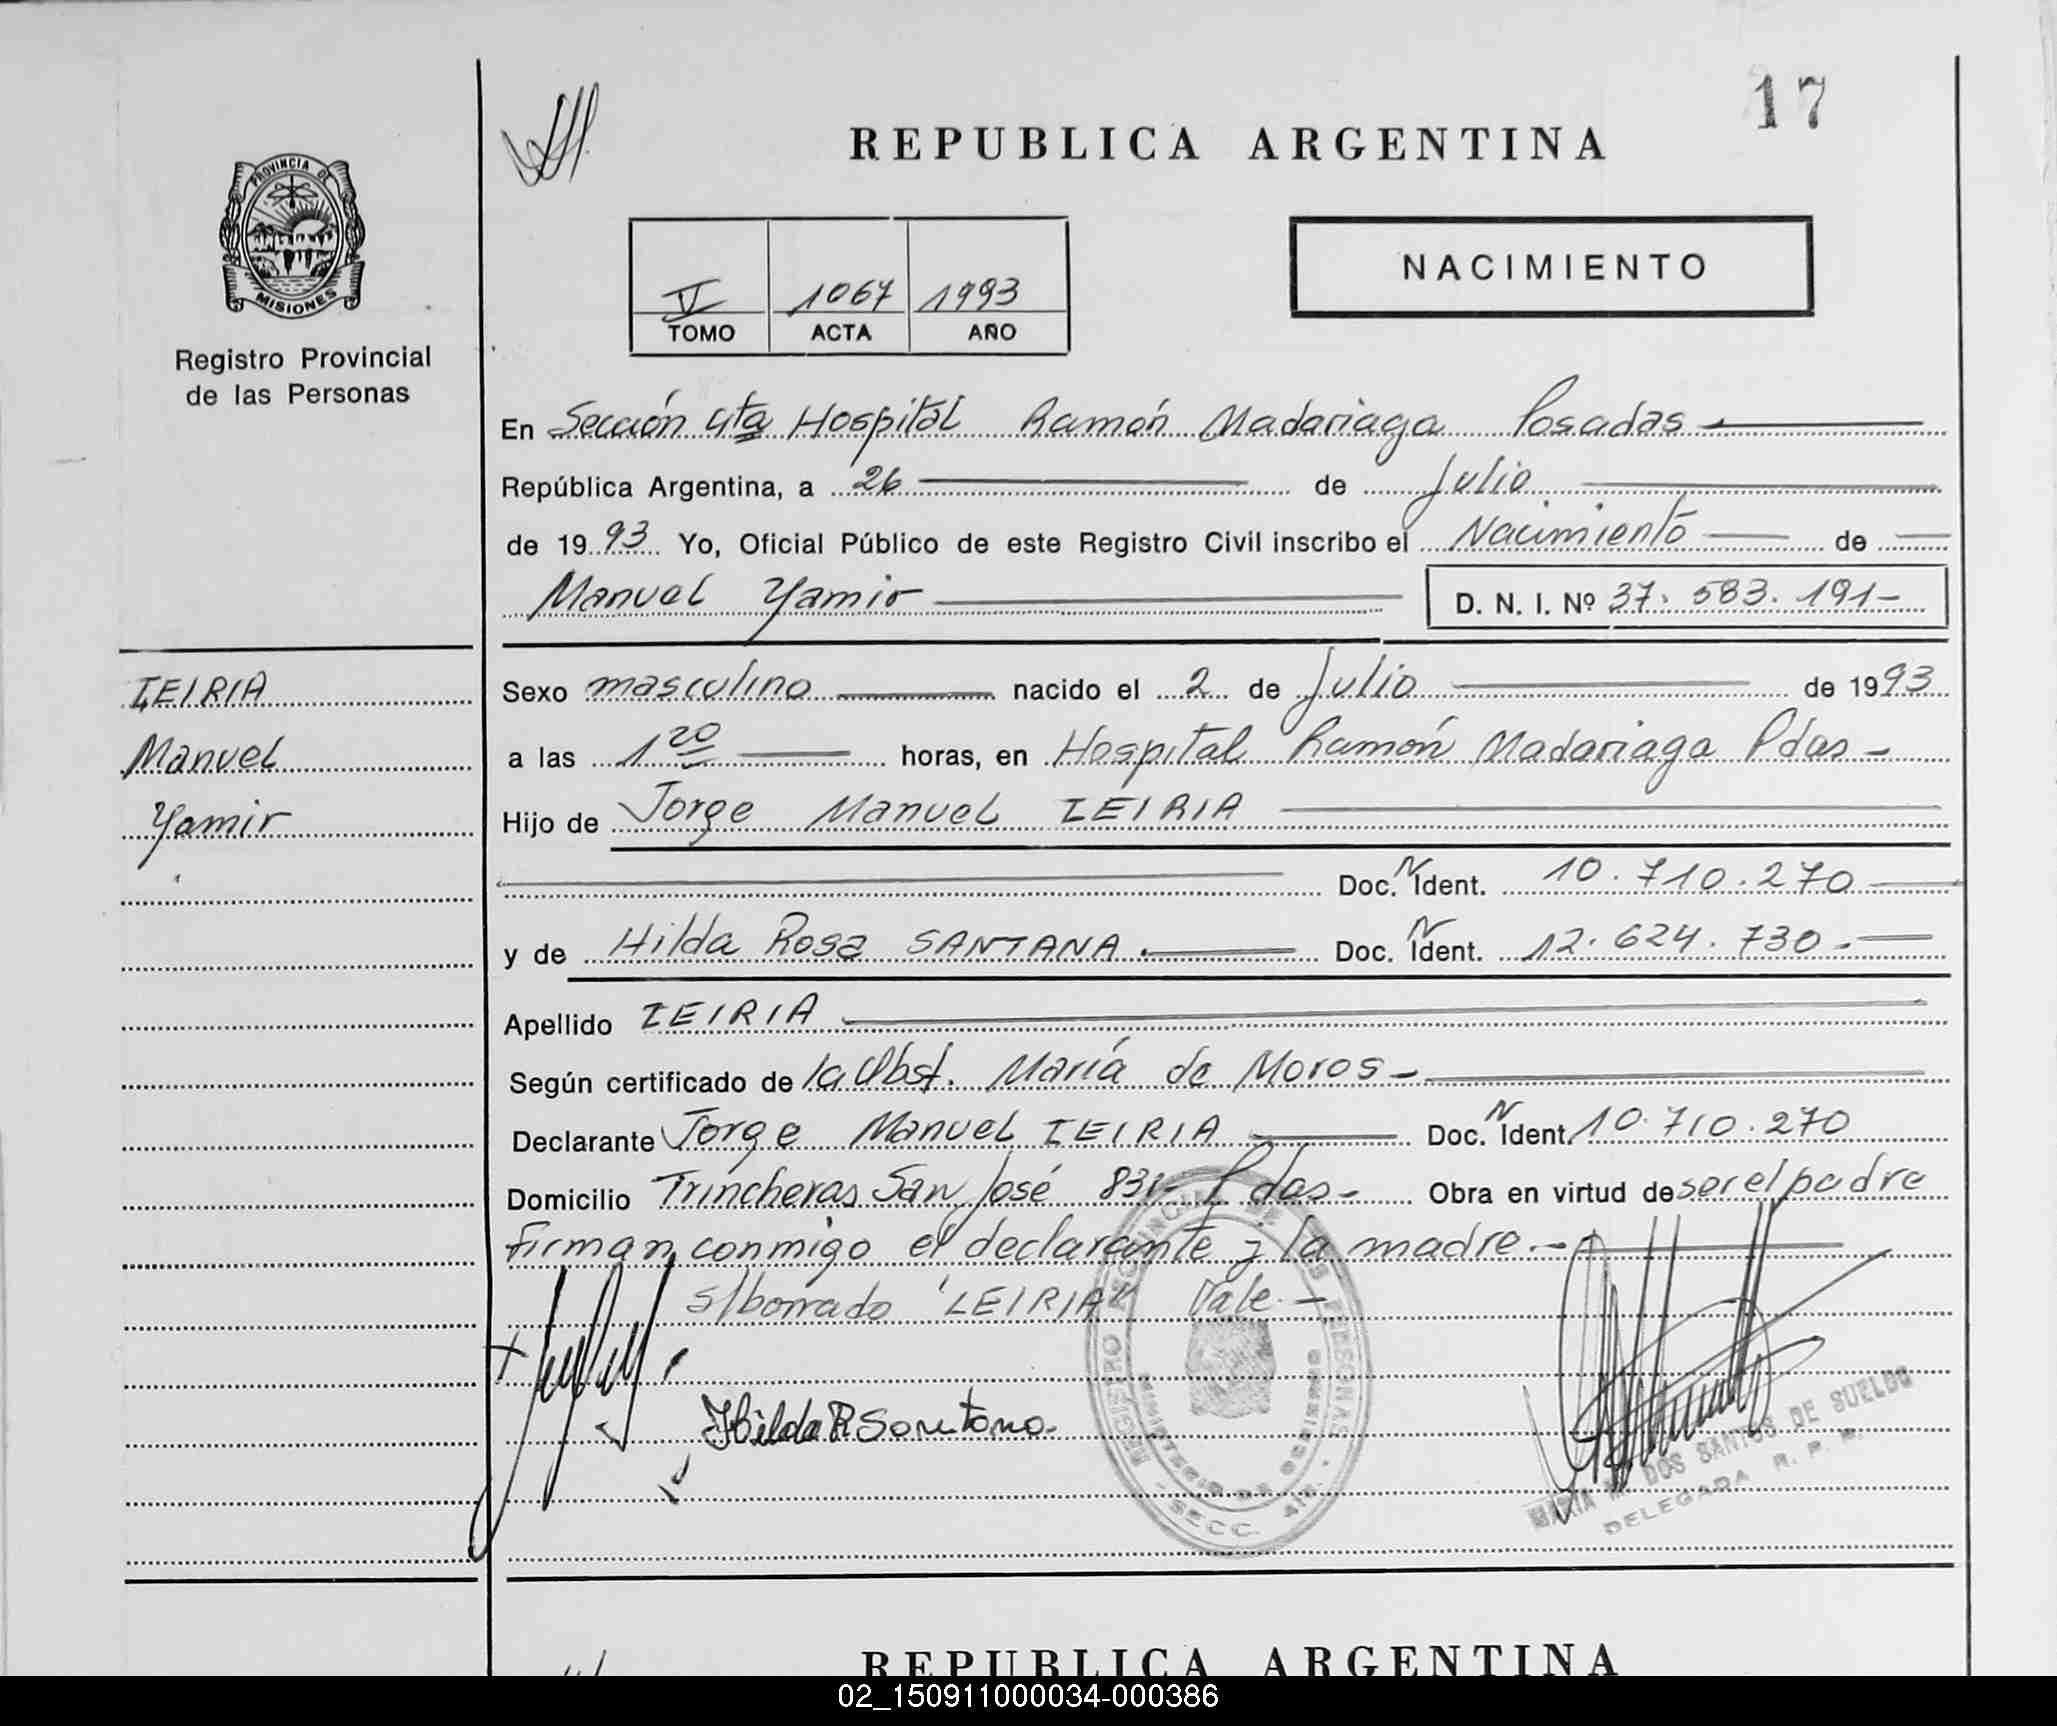 17
REPUBLICA ARGENTINA
PROVINCIA DE
MISIONES
Registro Provincial
de las Personas
NACIMIENTO
V 1067 1993
TOMO ACTA AÑO
En Sección 4ta Hospital Ramón Madariaga Posadas
República Argentina, a 26 de Julio
de 1993 Yo, Oficial Público de este Registro Civil inscribo el Nacimiento de
Manuel Yamir D. N. I. Nº 37.583.191-
IEIRIA
Manuel
Yamir
Sexo masculino nacido el 2 de Julio de 1993
a las 1 20 horas, en Hospital Ramón Madariaga Pdas-
Hijo de Jorge Manuel IEIRIA
Doc. N Ident. 10.710.270
y de Hilda Rosa SANTANA. Doc. N Ident. 12.624.730.-
Apellido IEIRIA
Según certificado de la Obst. María de Moros-
Declarante Jorge Manuel IEIRIA Doc. N Ident. 10.710.270
Domicilio Trincheras San José 831- Pdas- Obra en virtud de ser el padre
firman conmigo el declarante y la madre.-
s/borrado "LEIRIA" Vale.-
Hilda R Santana.
REGISTRO PROVINCIAL DE LAS PERSONAS
MINISTERIO DE GOBIERNO
SECC. 4ta.
MARIA M. DOS SANTOS DE SUELDO
DELEGADA R. P. P.
REPUBLICA ARGENTINA
02_150911000034-000386